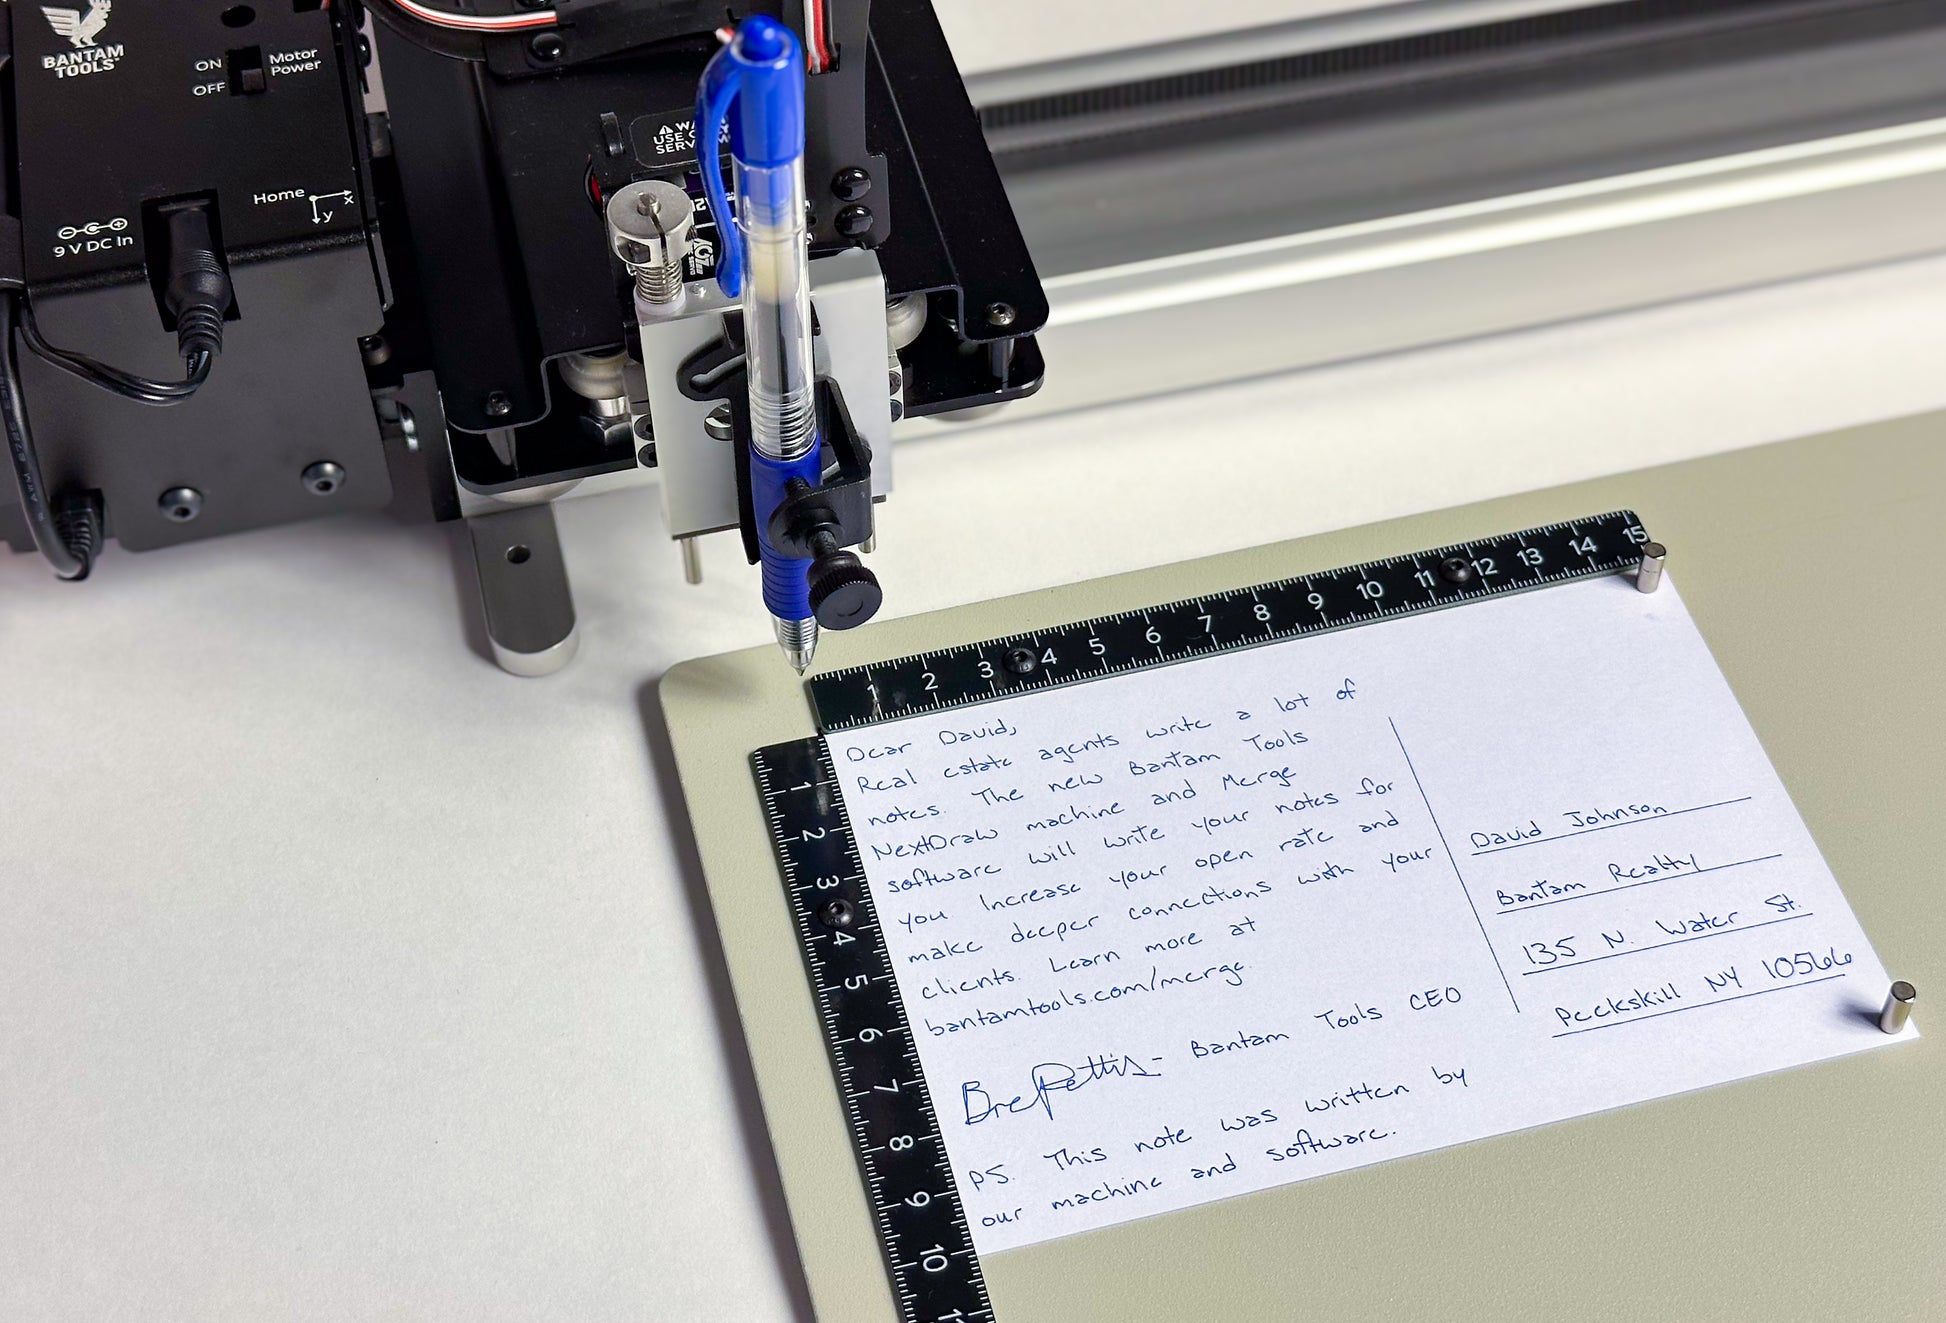 BANTAM
TOOLS
ON
OFF
Motor
Power
Home
x
y
9 V DC In
USE
SERV
1 2 3 4 5 6 7 8 9 10 11 12 13 14 15
1
2
3
4
5
6
7
8
9
10
Dear David,
Real estate agents write a lot of
notes. The new Bantam Tools
NextDraw machine and Merge
software will write your notes for
you. Increase your open rate and
make deeper connections with your
clients. Learn more at
bantamtools.com/merge.
Bre Pettis - Bantam Tools CEO
PS. This note was written by
our machine and software.
David Johnson
Bantam Realty
135 N. Water St.
Peekskill NY 10566